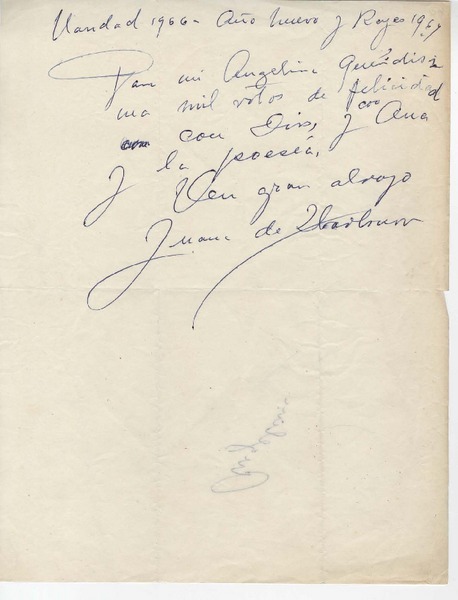 Navidad 1966 - Año nuevo y Reyes 1967
Para mi Angelina queridísi
ma mil votos de felicidad
con Dios, y con Ana
y la poesía,
Un gran abrazo
Juana de Ibarbourou
Angelina